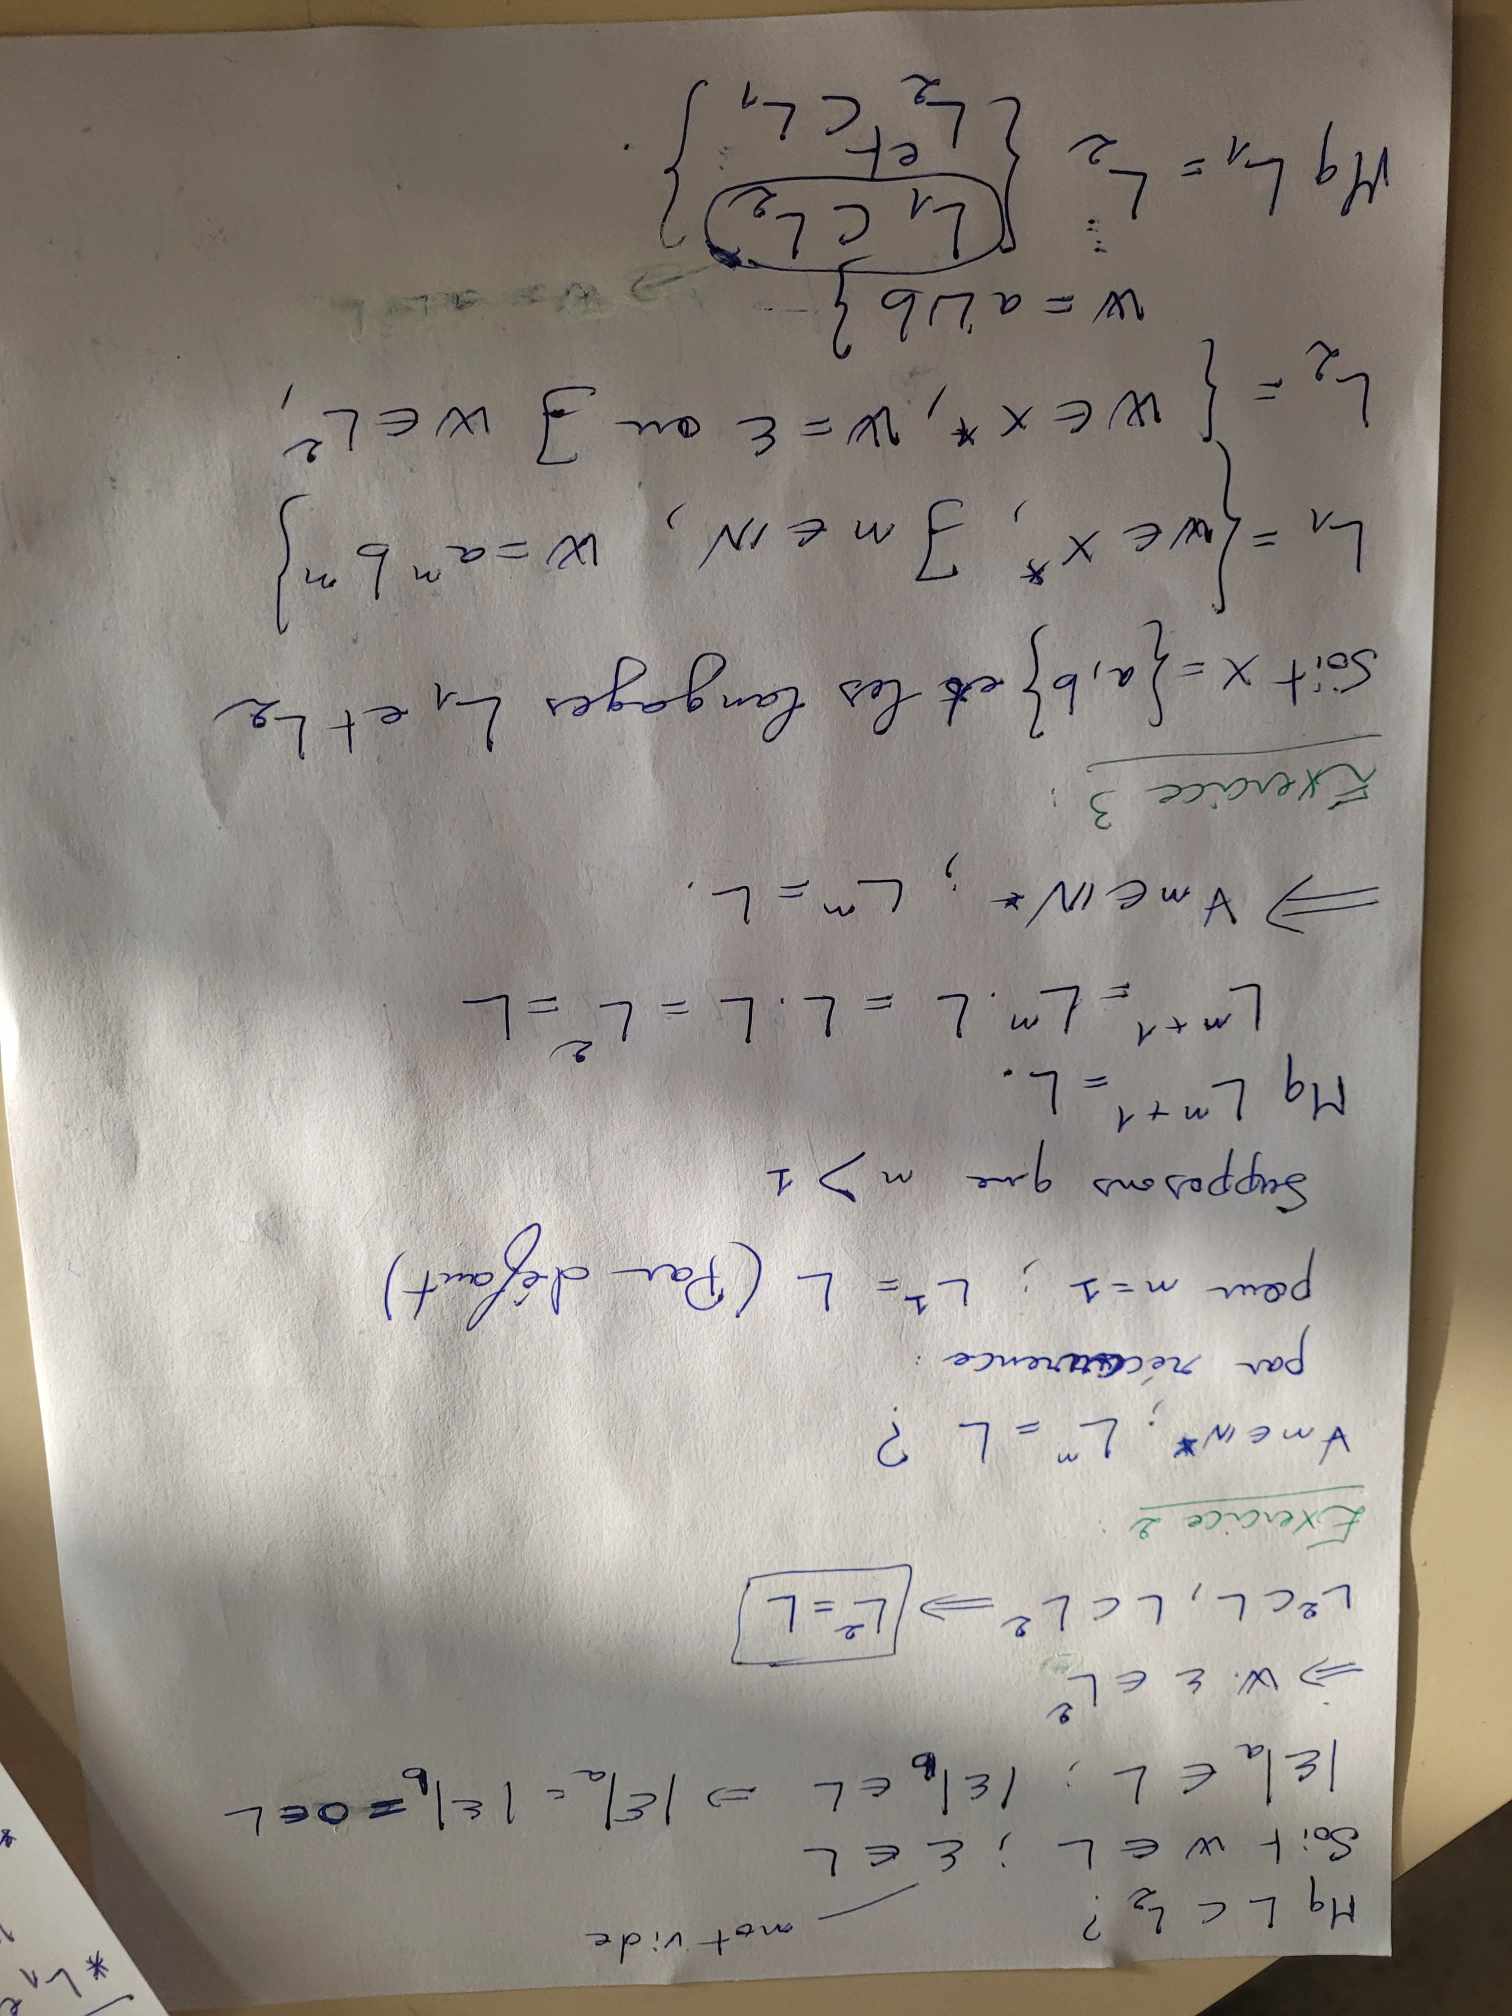 * L₁
mot vide
Mq L ⊂ L₂ ?
Soit w ∈ L ; ε ∈ L
|ε|a ∈ L ; |ε|b ∈ L ⇒ |ε|a = |ε|b = 0 ∈ L
⇒ w. ε ∈ L²
L² ⊂ L, L ⊂ L² ⇒ L² = L
Exercice 2 :
∀ n ∈ ℕ* ; Lⁿ = L ?
par récurrence :
pour n = 1 ; L¹ = L (Par défaut)
Supposons que n > 1
Mq Lⁿ⁺¹ = L.
Lⁿ⁺¹ = Lⁿ . L = L . L = L² = L
⇒ ∀ n ∈ ℕ* ; Lⁿ = L.
Exercice 3 :
Soit X = {a, b} et les langages L₁ et L₂
L₁ = {w ∈ X*, ∃ n ∈ ℕ, w = aⁿ bⁿ}
L₂ = { w ∈ X*, w = ε ou ∃ w ∈ L²,
w = a ⊔ b }
Mq L₁ = L₂ { L₁ ⊂ L₂
et
L₂ ⊂ L₁ } .